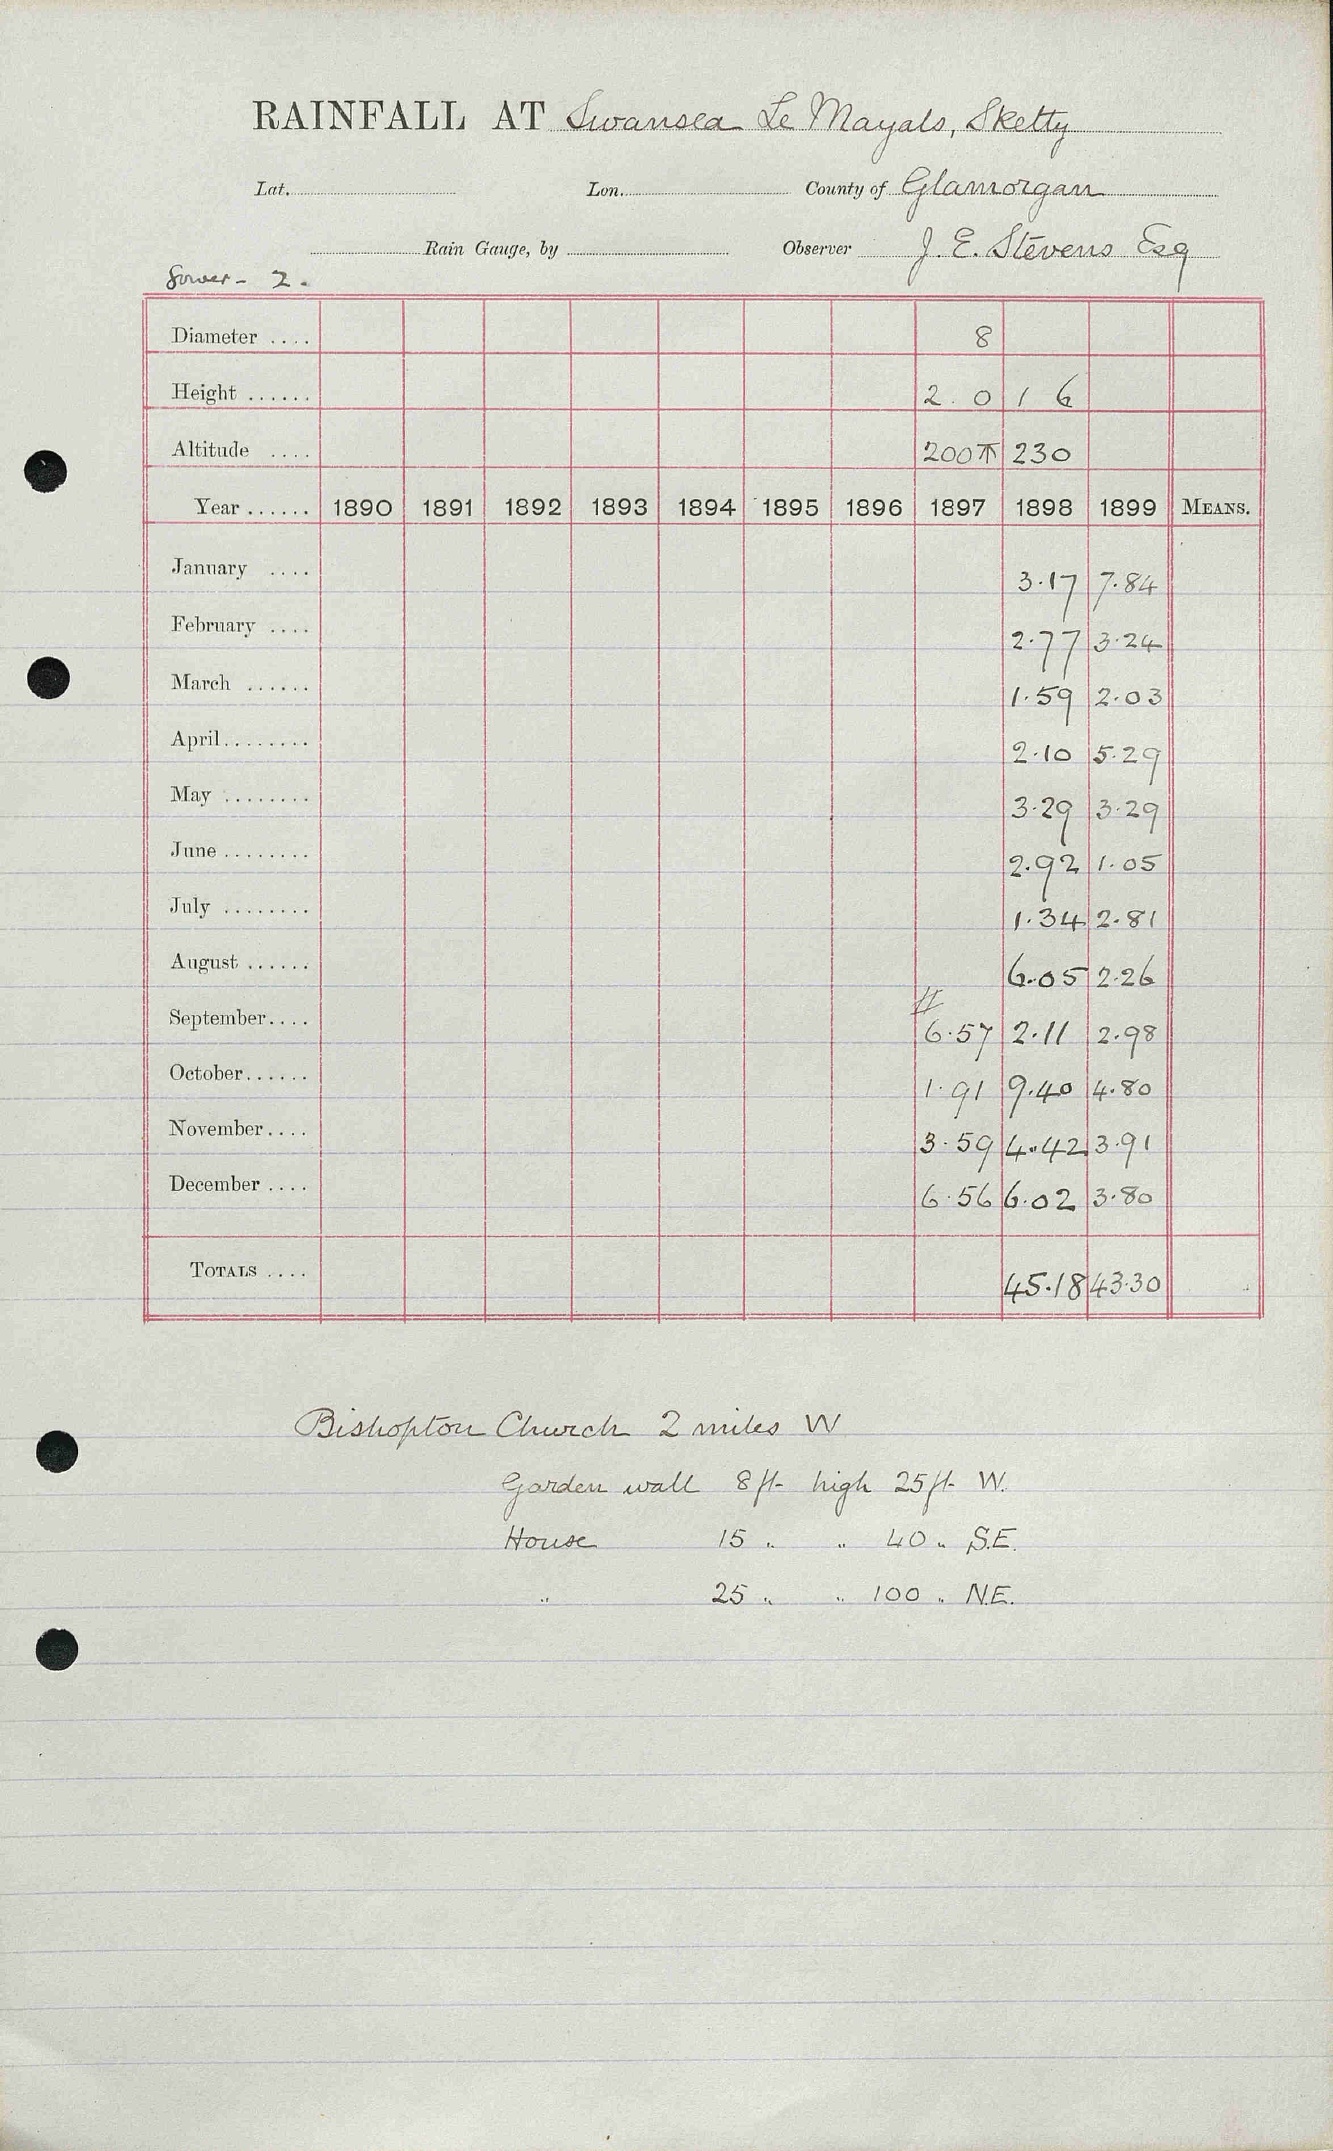 RAINFALL AT Swansea Le Mayals, Sketty
Lat. Lon. County of Glamorgan
Rain Gauge, by Observer J. E. Stevens Esq
Gower - 2.
Diameter .... 8
Height ...... 2. 0 1 6
Altitude .... 200 230
Year ...... 1890 1891 1892 1893 1894 1895 1896 1897 1898 1899 MEANS.
January .... 3.17 7.84
February .... 2.77 3.24
March ...... 1.59 2.03
April........ 2.10 5.29
May ........ 3.29 3.29
June ........ 2.92 1.05
July ........ 1.34 2.81
August ...... 6.05 2.26
September.... 6.57 2.11 2.98
October...... 1.91 9.40 4.80
November.... 3.59 4.42 3.91
December .... 6.56 6.02 3.80
TOTALS .... 45.18 43.30
Bishopton Church 2 miles W
Garden wall 8 ft. high 25 ft. W.
House 15 " " 40 " S.E.
" 25 " " 100 " N.E.